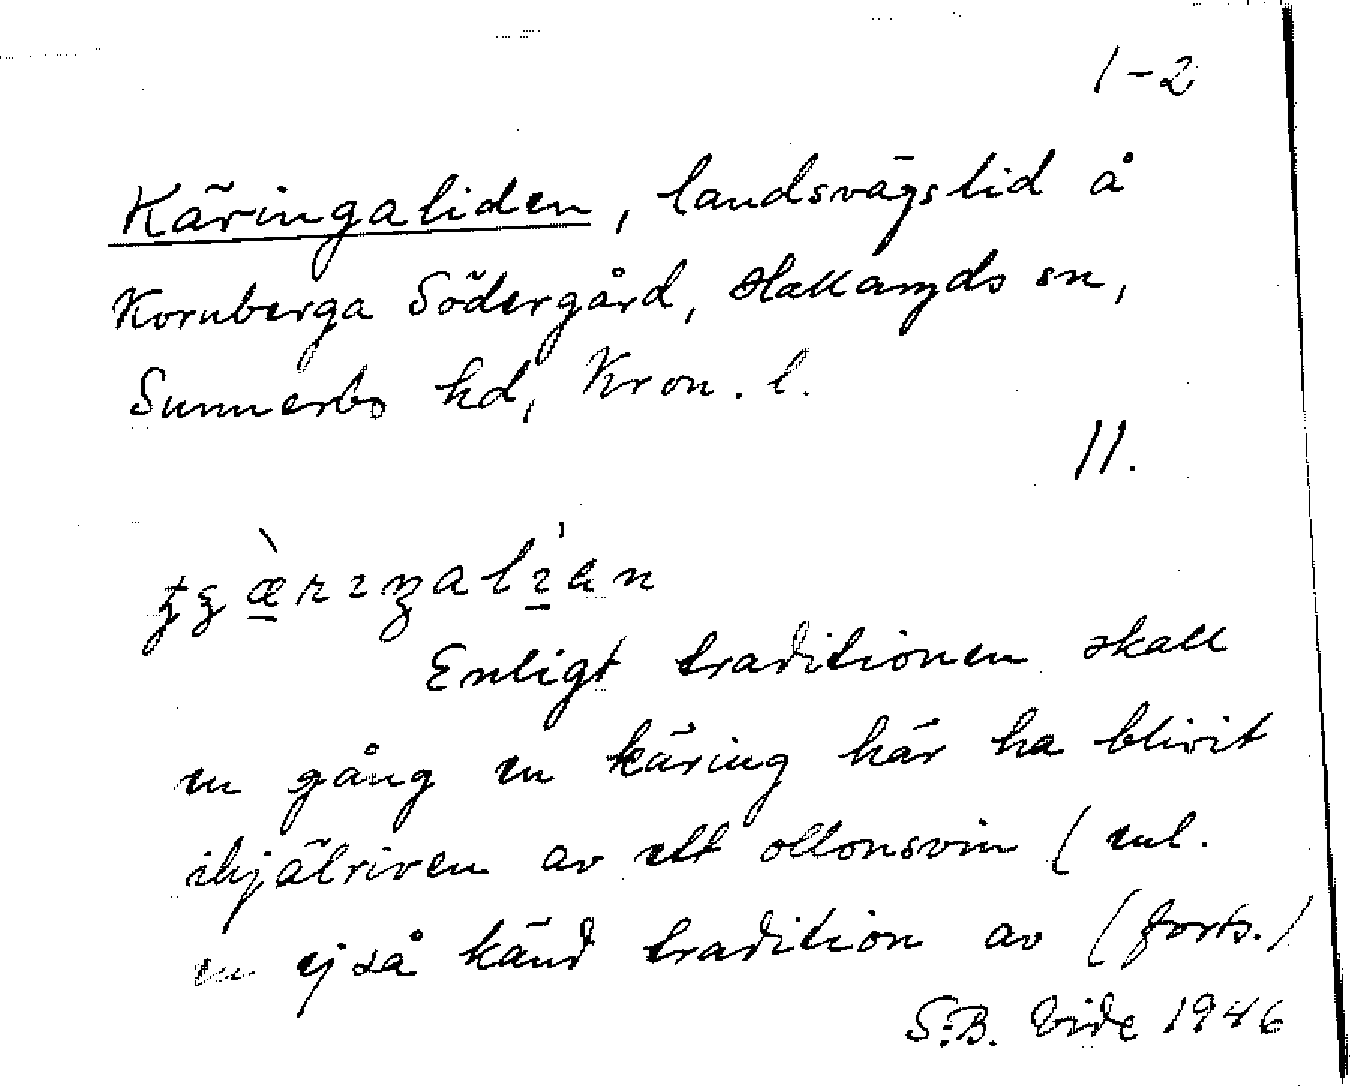 1-2
Käringaliden, landsvägslid å
Kornberga Södergård, Hallaryds sn,
Sunnerbo hd, Kron. l.
11.
Enligt traditionen skall
en gång en käring här ha blivit
ihjälriven av ett ollonsvin (enl.
en ej så känd tradition av (forts.)
S.B. Vide 1946